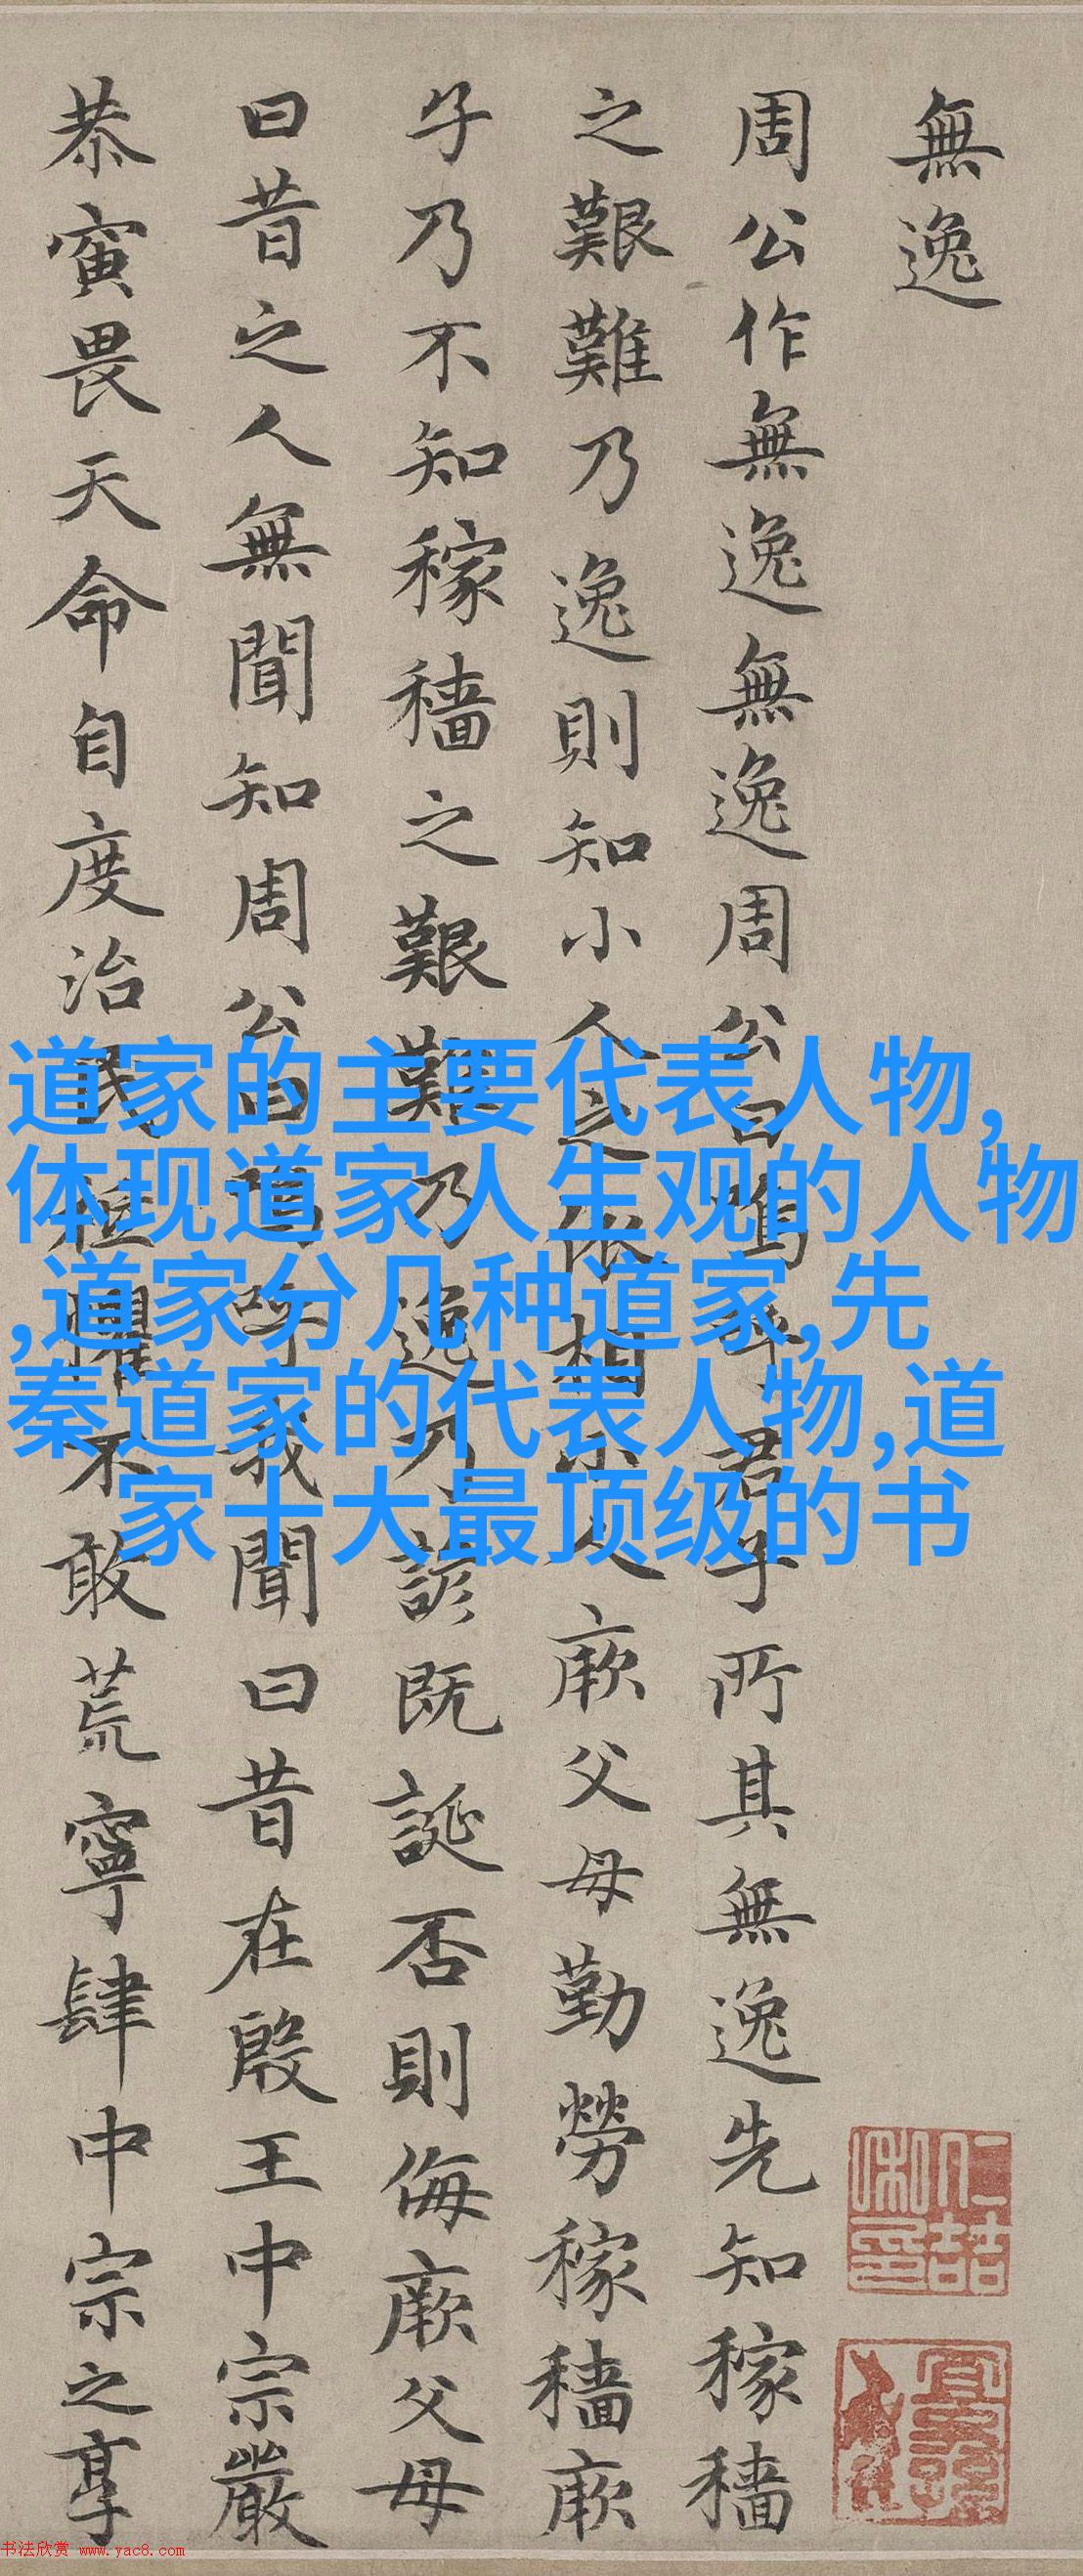 無逸
周公作無逸無逸周公曰嗚呼君子所其無逸先知稼穡
之艱難乃逸則知小人之依相小人厥父母勤勞稼穡厥
子乃不知稼穡之艱難乃逸乃諺既誕否則侮厥父母
曰昔之人無聞知周公曰嗚呼我聞曰昔在殷王中宗嚴
恭寅畏天命自度治民祗懼不敢荒寧肆中宗之享
道家的主要代表人物,
体现道家人生观的人物
,道家分几种道家,先
秦道家的代表人物,道
家十大最顶级的书
书法欣赏 www.yac8.com